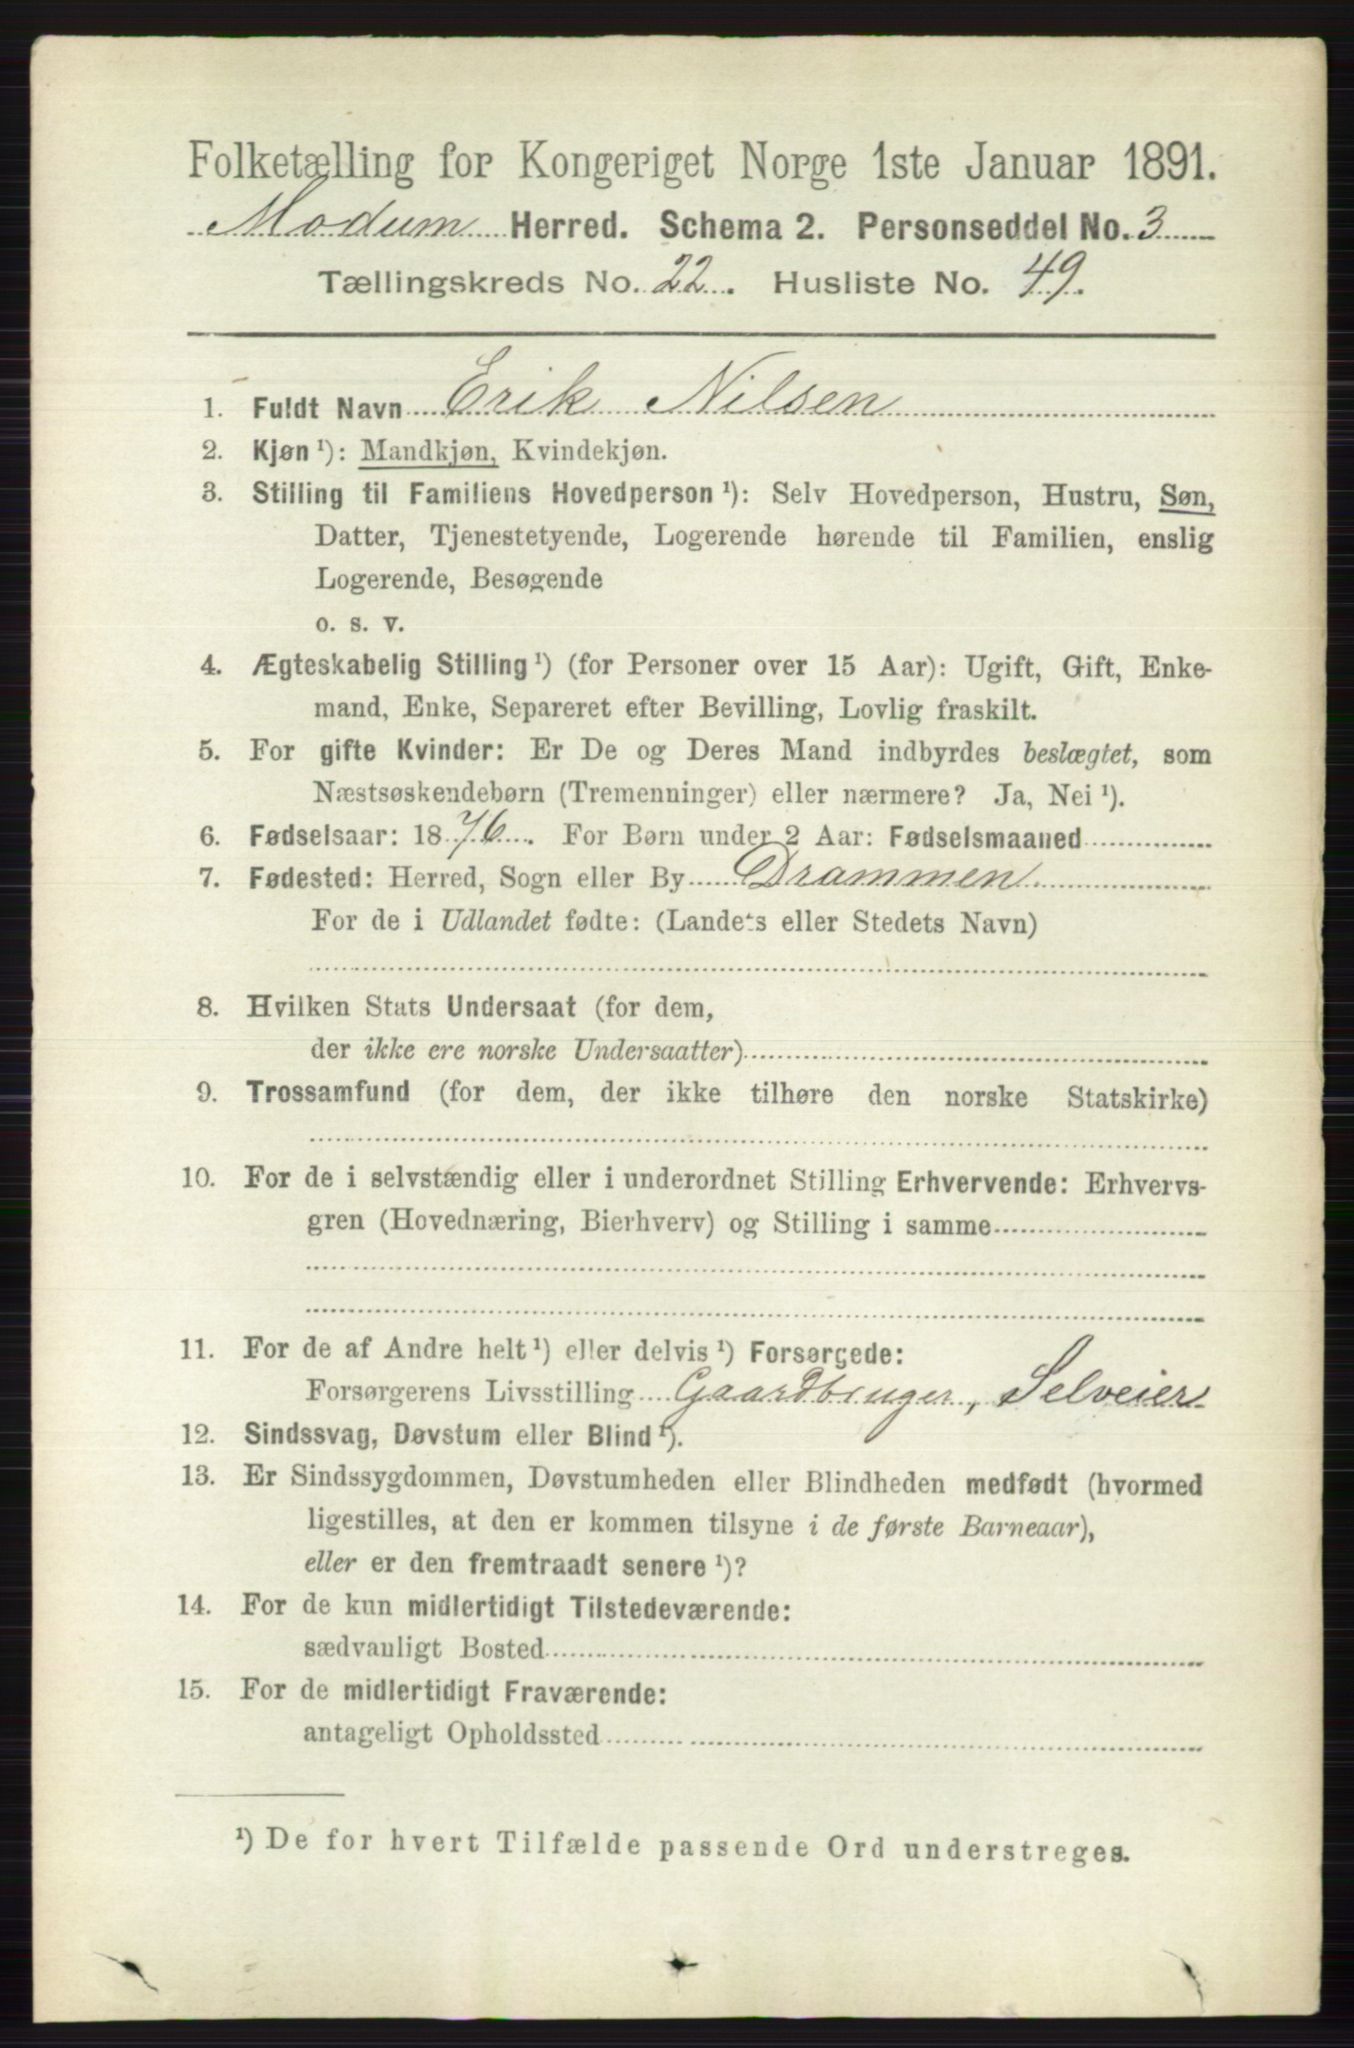 Folketælling for Kongeriget Norge 1ste Januar 1891.
Modum Herred. Schema 2. Personseddel No. 3
Tællingskreds No. 22. Husliste No. 49.
1. Fuldt Navn Erik Nilsen
2. Kjøn ¹): Mandkjøn, Kvindekjøn.
3. Stilling til Familiens Hovedperson ¹): Selv Hovedperson, Hustru, Søn,
Datter, Tjenestetyende, Logerende hørende til Familien, enslig
Logerende, Besøgende
o. s. v.
4. Ægteskabelig Stilling ¹) (for Personer over 15 Aar): Ugift, Gift, Enke-
mand, Enke, Separeret efter Bevilling, Lovlig fraskilt.
5. For gifte Kvinder: Er De og Deres Mand indbyrdes beslægtet, som
Næstsøskendebørn (Tremenninger) eller nærmere? Ja, Nei ¹).
6. Fødselsaar: 1876. For Børn under 2 Aar: Fødselsmaaned
7. Fødested: Herred, Sogn eller By Drammen
For de i Udlandet fødte: (Landets eller Stedets Navn)
8. Hvilken Stats Undersaat (for dem,
der ikke ere norske Undersaatter)
9. Trossamfund (for dem, der ikke tilhøre den norske Statskirke)
10. For de i selvstændig eller i underordnet Stilling Erhvervende: Erhvervs-
gren (Hovednæring, Bierhverv) og Stilling i samme
11. For de af Andre helt ¹) eller delvis ¹) Forsørgede:
Forsørgerens Livsstilling Gaardbruger, Selveier
12. Sindssvag, Døvstum eller Blind ¹).
13. Er Sindssygdommen, Døvstumheden eller Blindheden medfødt (hvormed
ligestilles, at den er kommen tilsyne i de første Barneaar),
eller er den fremtraadt senere ¹)?
14. For de kun midlertidigt Tilstedeværende:
sædvanligt Bosted
15. For de midlertidigt Fraværende:
antageligt Opholdssted
¹) De for hvert Tilfælde passende Ord understreges.